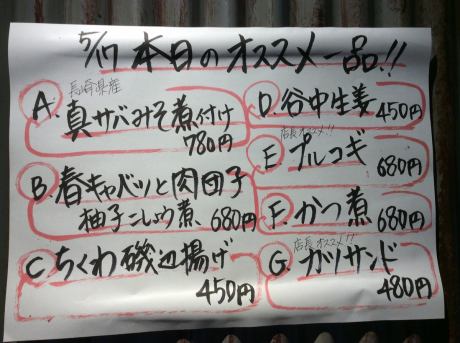 5/17 本日のオススメ一品!!
A. 長崎県産
真サバみそ煮付け
780円
B. 春キャベツと肉団子
柚子こしょう煮 680円
C ちくわ磯辺揚げ
450円
D. 谷中生姜 450円
店長オススメ!!
E プルコギ
680円
F. かつ煮 680円
店長オススメ!!
G. ガツサンド
480円